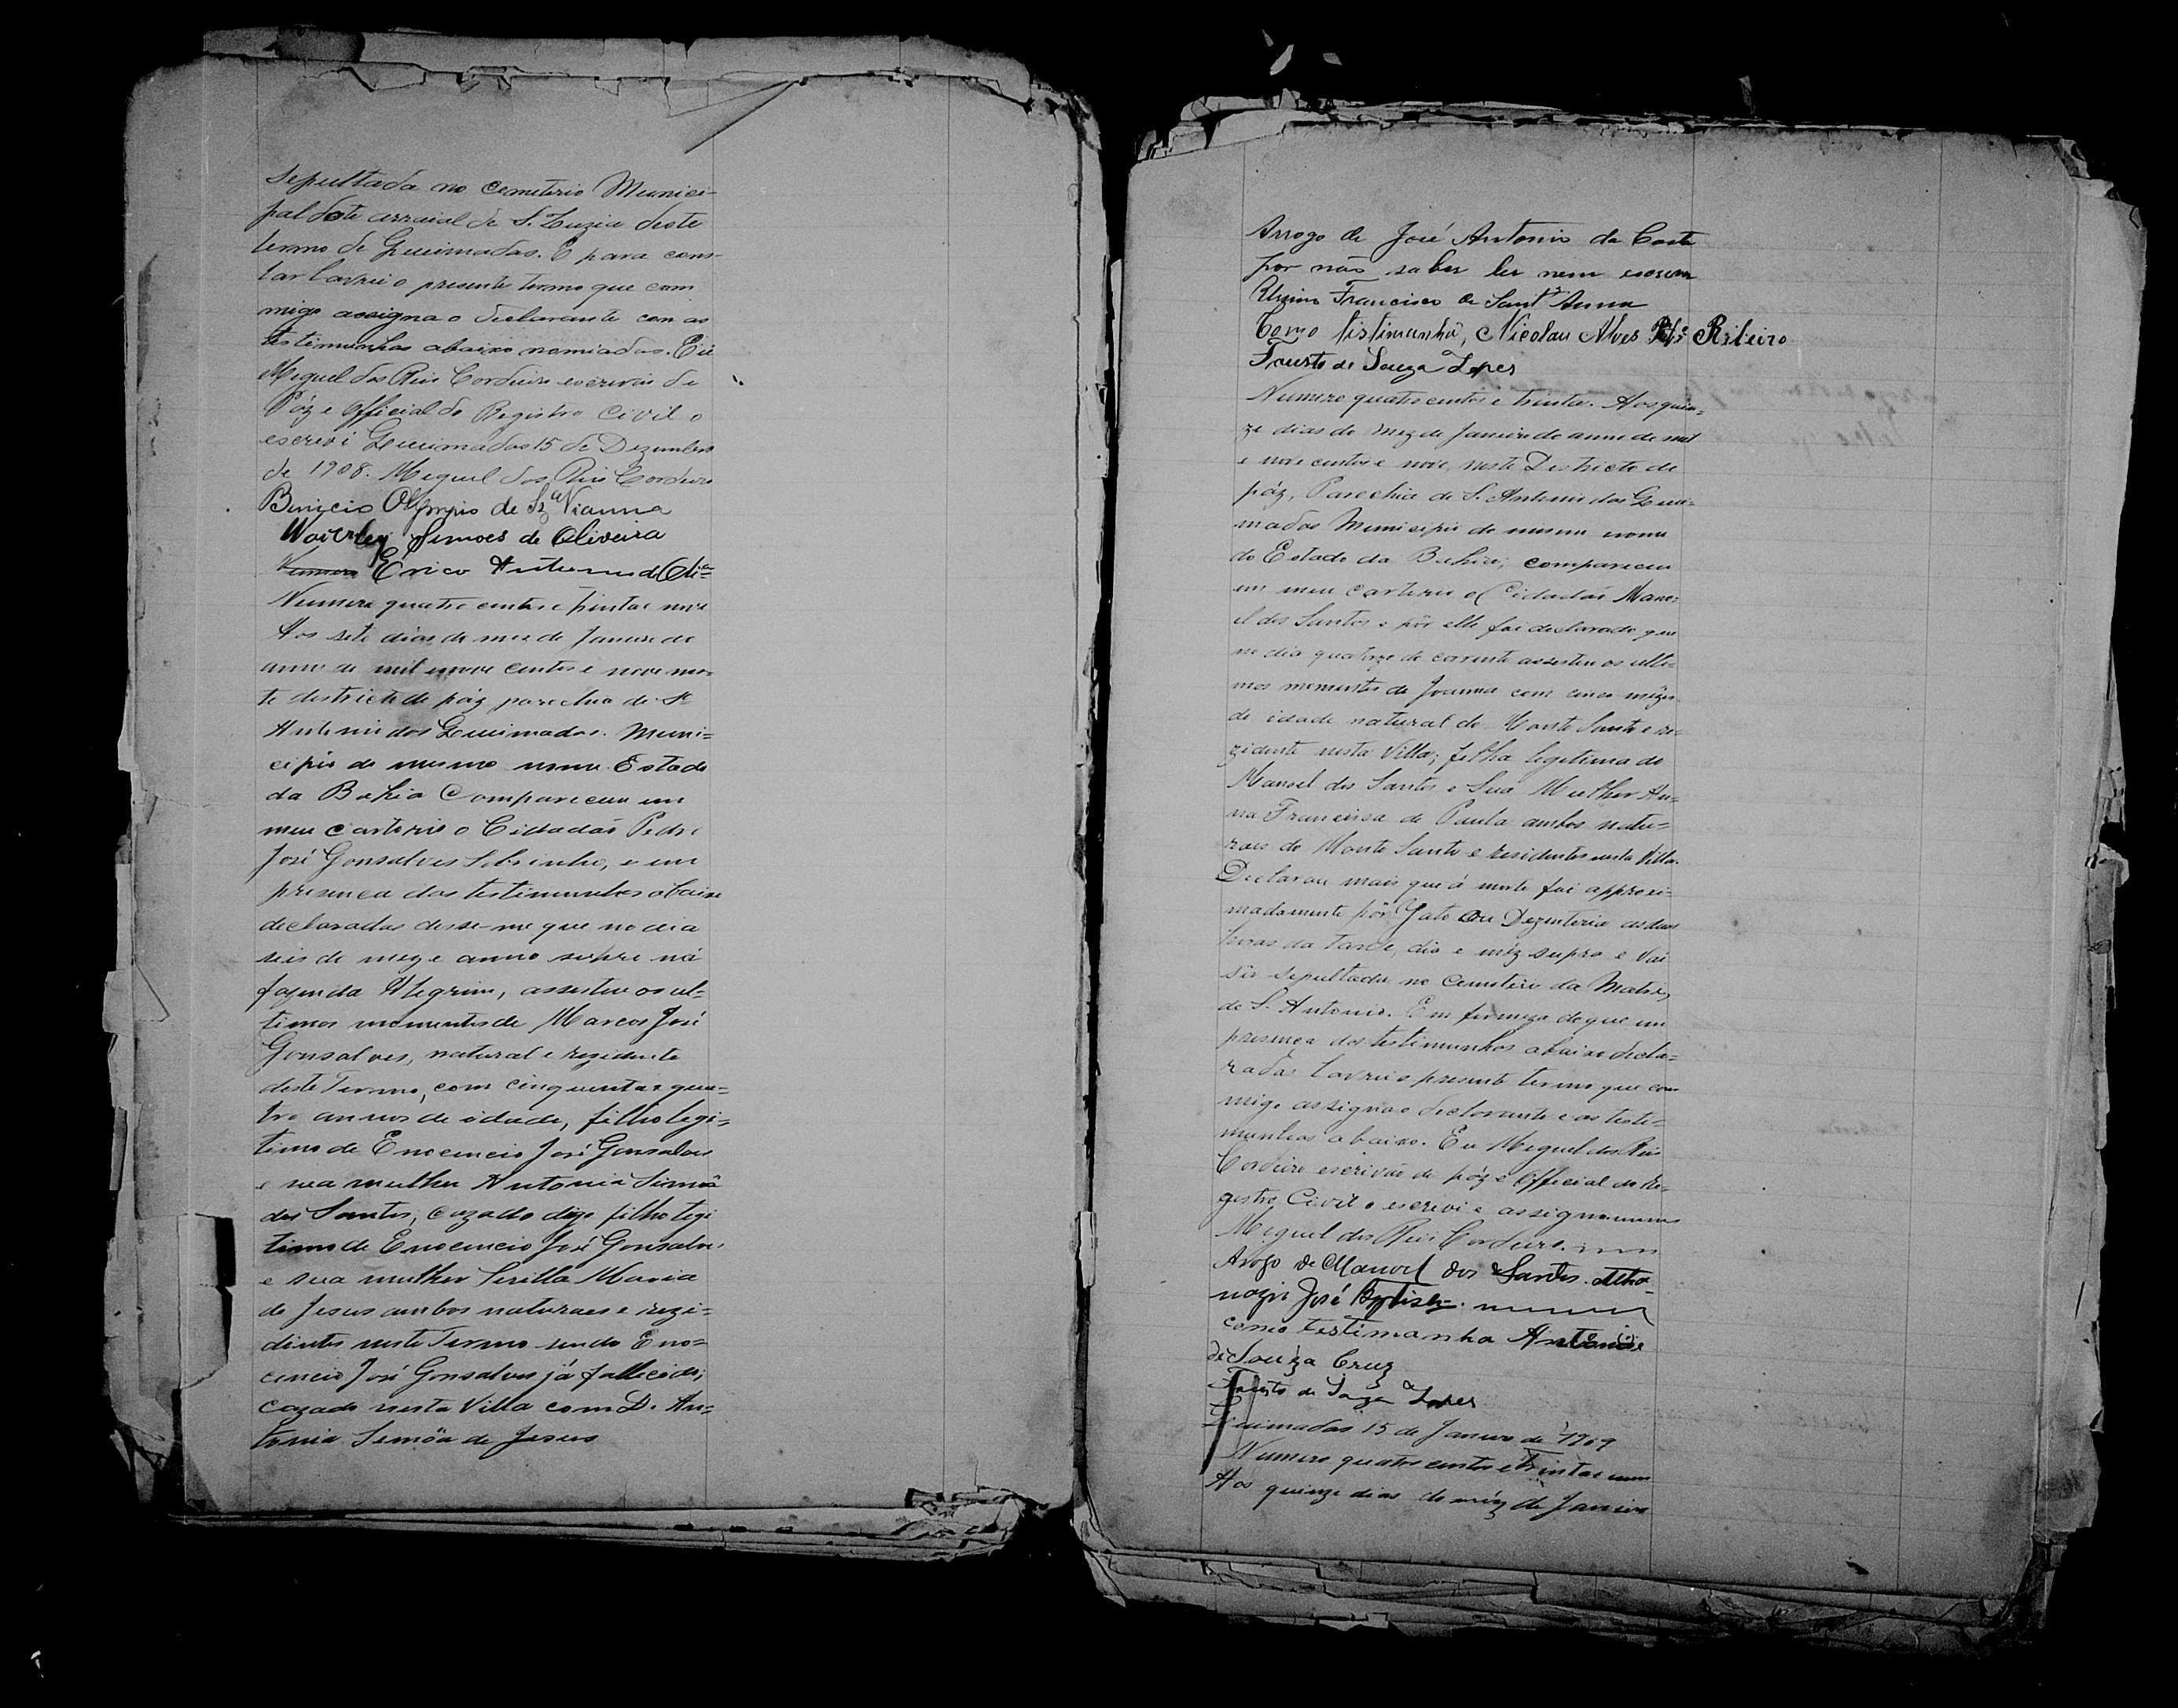 Sepultada no Cemeterio Munici-
pal deste arraial de S. Luzia deste
termo de Queimadas. E para cons-
tar lavrei o presente termo que com
migo assigna o declarante com as
testemunhas abaixo nomiadas. Eu
Miguel dos Reis Cordeiro escrivão de
Páz e Official do Registro Civil o
escrevi Queimadas 15 de Dezembro
de 1908. Miguel dos Reis Cordeiro
Binicio Olympio de Sz.ª Vianna
Waverley Simões de Oliveira
Numero Erico Antunes de Oli.ra
Numero quatro centos e vinta e nove
Aos sete dias do mez de Janeiro do
anno de mil e nove centos e nove nes-
te destricto de páz parochia de St.
Antonio dos Queimadas. Muni-
cipio do mesmo nome Estado
da Bahia Compareceu em
meu cartorio o Cidadão Pedro
José Gonsalves Sobrinho, e em
presença das testemunhas abaixo
declaradas disse-me que no dia
seis do mez e anno supra na
fazenda Alegrim, assestiu os ul-
timos momentos de Marcos José
Gonsalves, natural e rezidente
deste Termo, com cinquenta e qua-
tro annos de idade, filho legi-
timo de Enocencio José Gonsalves
e sua mulher Antonia Simôa
dos Santos, cazado digo filho legi
timo de Enocencio José Gonsalves
e sua mulher Sirilla Maria
de Jesus ambos naturaes e rezi-
dentes neste Termo sendo Eno-
cencio José Gonsalves já fallecido;
Cazado nesta Villa com D. An-
tonia Semôa de Jesus
Arrogo de José Antonio da Costa
por não saber ler nem escrever
Francisco de Sant'Anna
Como testimunha, Nicolau Alves Ribeiro
Fausto de Souza Lopes
Numero quatro centos e trinta. Aos quin-
ze dias do mez de Janeiro do anno de mil
e nove centos e nove, neste Destricto de
páz, Parochia de S. Antonio das Quei-
madas Municipio do mesmo nome
do Estado da Bahia; compareceu
em meu cartorio o Cidadão Mano-
el dos Santos e pôr elle foi declarado que
no dia quatorze do corrente assestiu os ulti-
mos momentos de Joanna com cinco mêzes
de idade natural do Monte Santo e re-
zidente nesta Villa; filha legitima de
Manoel dos Santos e Sua Mulher An-
na Francisca de Paula ambos natu-
raes do Monte Santo e residentes nesta Villa.
Declarou mais que á morte foi approxi-
madamente pôr Gato ou Dezenteria as duas
horas da tarde, dia e mêz supra e vai
sêr sepultada no Cemiterio da Matriz
de S. Antonio. Em firmeza do que em
presença das testimunhas abaixo decla-
radas lavrei o presente termo que com
migo assigna o declarante e as testi-
munhas abaixo. Eu Miguel dos Reis
Cordeiro escrivão de páz e Official do Re-
gistro Civil o escrevi e assignamos
Miguel dos Reis Cordeiro.
Arogo de Manoel dos Santos Atha-
nazio José Baptista.
como testimanha Antonio
de Souza Cruz
Fausto de Souza Lopes
Queimadas 15 de Janeiro de 1909
Numero quatro centos e trinta e um
Aos quinze dias do mêz de Janeiro